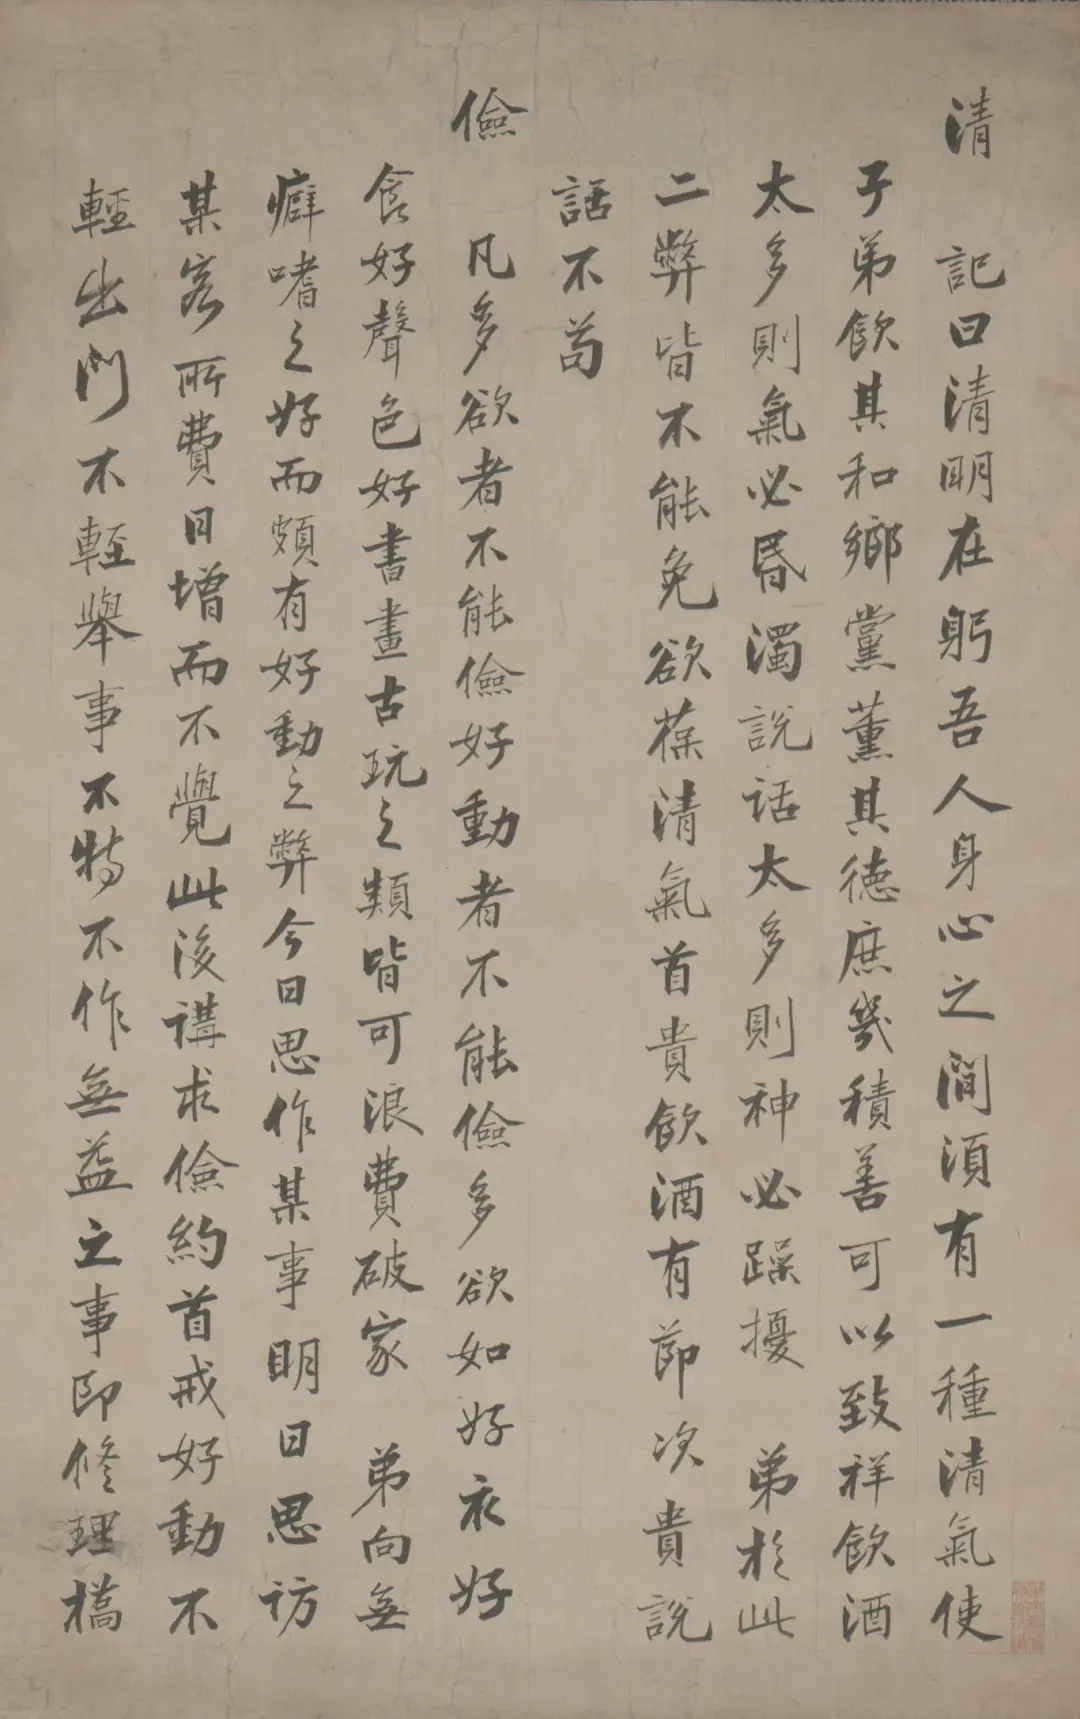 清　記曰清明在躬吾人身心之間須有一種清氣使
子弟飲其和鄉黨薰其德庶幾積善可以致祥飲酒
太多則氣必昏濁說話太多則神必躁擾　弟於此
二弊皆不能免欲葆清氣首貴飲酒有節次貴說
話不苟
儉　凡多欲者不能儉好動者不能儉多欲如好衣好
食好聲色好書畫古玩之類皆可浪費破家　弟向無
癖嗜之好而頗有好動之弊今日思作某事明日思訪
某客所費日增而不覺此後講求儉約首戒好動不
輕出門不輕舉事不特不作無益之事即修理橋